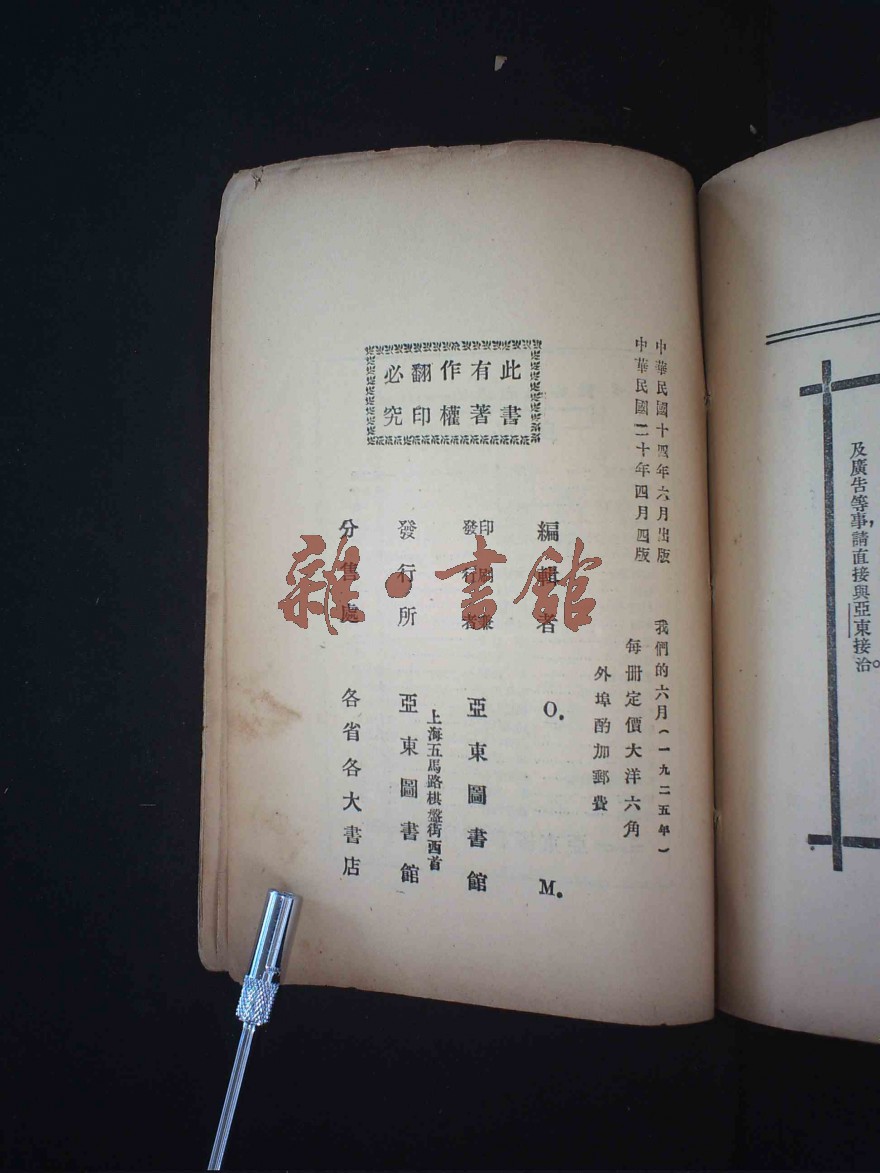 及廣告等事,請直接與亞東接洽。
中華民國十四年六月出版
中華民國二十年四月四版
我們的六月(一九二五年)
每冊定價大洋六角
外埠酌加郵費
此書
有著
作權
翻印
必究
編輯者 O. M.
印刷兼
發行者 亞東圖書館
上海五馬路棋盤街西首
發行所 亞東圖書館
分售處 各省各大書店
雜·書館